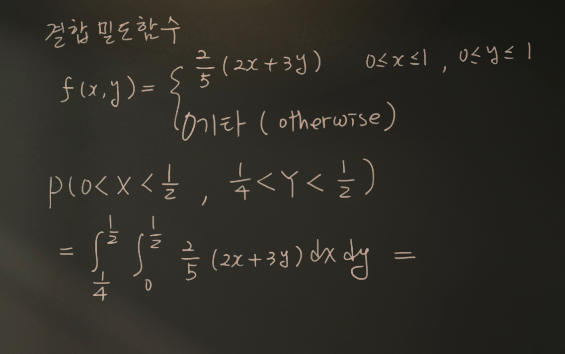 결합 밀도함수
f(x,y) = { 2/5 (2x+3y)   0≤x≤1 , 0≤y≤1
0 기타 (otherwise)
P(0<X<1/2 , 1/4<Y<1/2)
= ∫_{1/4}^{1/2} ∫_0^{1/2} 2/5 (2x+3y) dx dy =